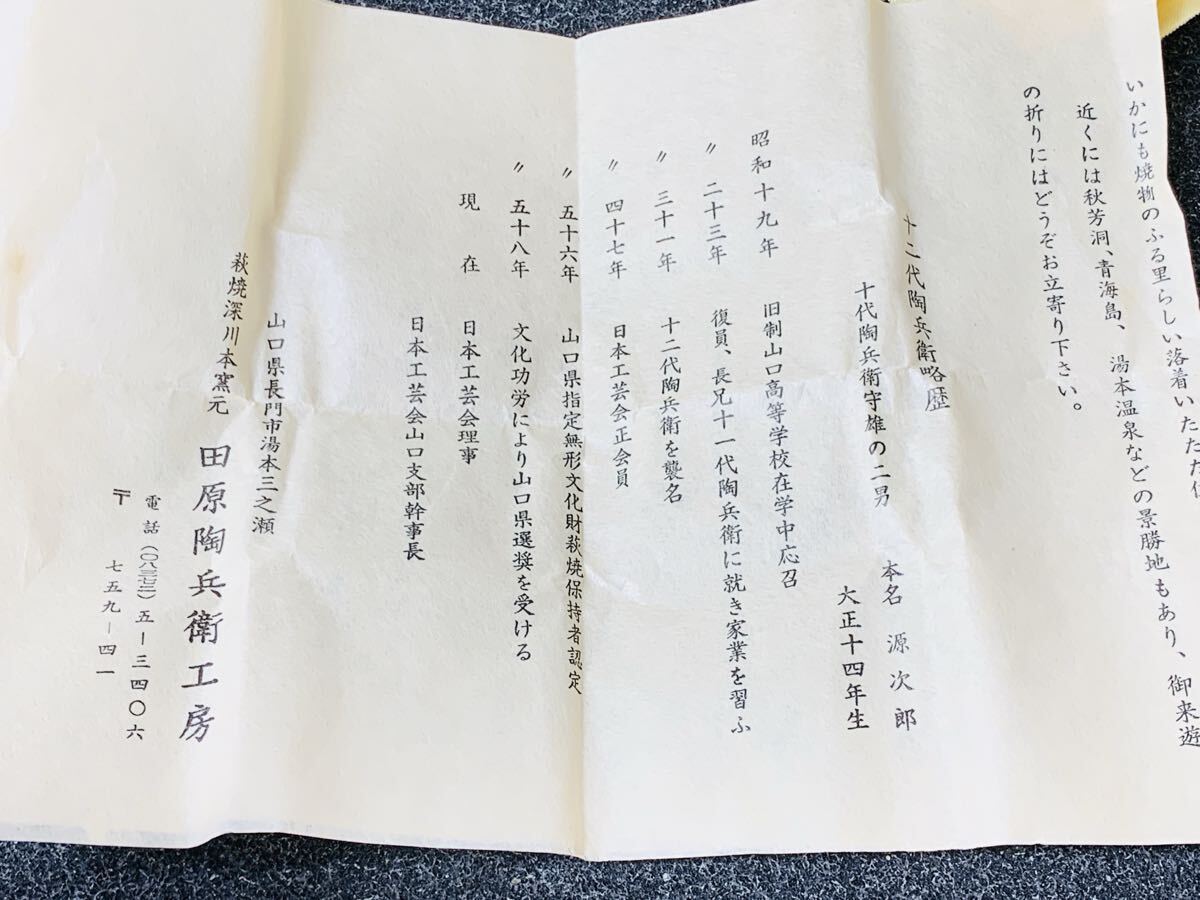 いかにも焼物のふる里らしい落着いたたた
近くには秋芳洞、青海島、湯本温泉などの景勝地もあり、御来遊
の折りにはどうぞお立寄り下さい。
十二代陶兵衛略歴
本名 源次郎
十代陶兵衛守雄の二男 大正十四年生
昭和十九年 旧制山口高等学校在学中応召
〃 二十三年 復員、長兄十一代陶兵衛に就き家業を習ふ
〃 三十一年 十二代陶兵衛を襲名
〃 四十七年 日本工芸会正会員
〃 五十六年 山口県指定無形文化財萩焼保持者認定
〃 五十八年 文化功労により山口県選奨を受ける
現在 日本工芸会理事
日本工芸会山口支部幹事長
山口県長門市湯本三之瀬
萩焼深川本窯元 田原陶兵衛工房
電話(〇八三七二)五―三四〇六
〒 七五九―四一